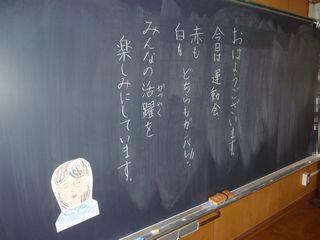 おはようございます。
今日は、運動会。
赤も
白も どちらもガンバレ!!
みんなの活躍を
かつやく
楽しみにしています。